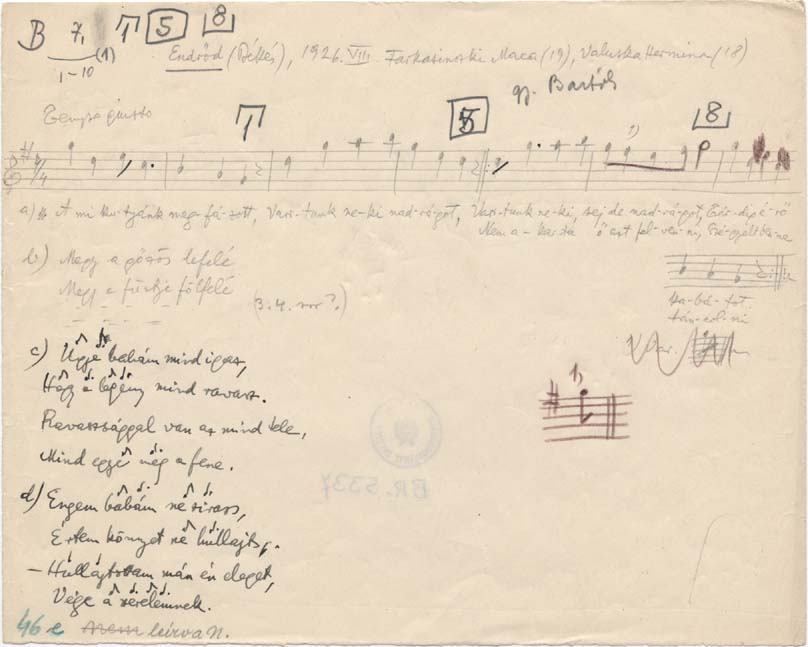 B 7, 1 5 8
1-10 (1)
Endrőd (Békés), 1926. VIII Farkasinszki Maca (19), Valuska Hermina (18)
gy. Bartók
Tempo giusto
1 5 8
a) A mi ku-tyánk meg-fá-zott, Varr-tunk ne-ki nad-rágot, Varr-tunk ne-ki, sej de nad-rágot,
Nem a-karta ő azt fel-ven-ni,
b) Megy a gőzös lefelé
Megy a füstje fölfelé
(3. 4. sor?.)
Ka-bá-tot
tán-col-ni
Var.
1)
c) Ugye babám mind igaz,
Hogy a legény mind ravasz.
Ravaszsággal van az mind tele,
Mind egye még a fene.
d) Engem babám ne sirass,
Értem könnyet ne hullajts,
– Hullajtottam mán én eleget,
Vége a szerelemnek.
BR. 5337
46 e leírva N.